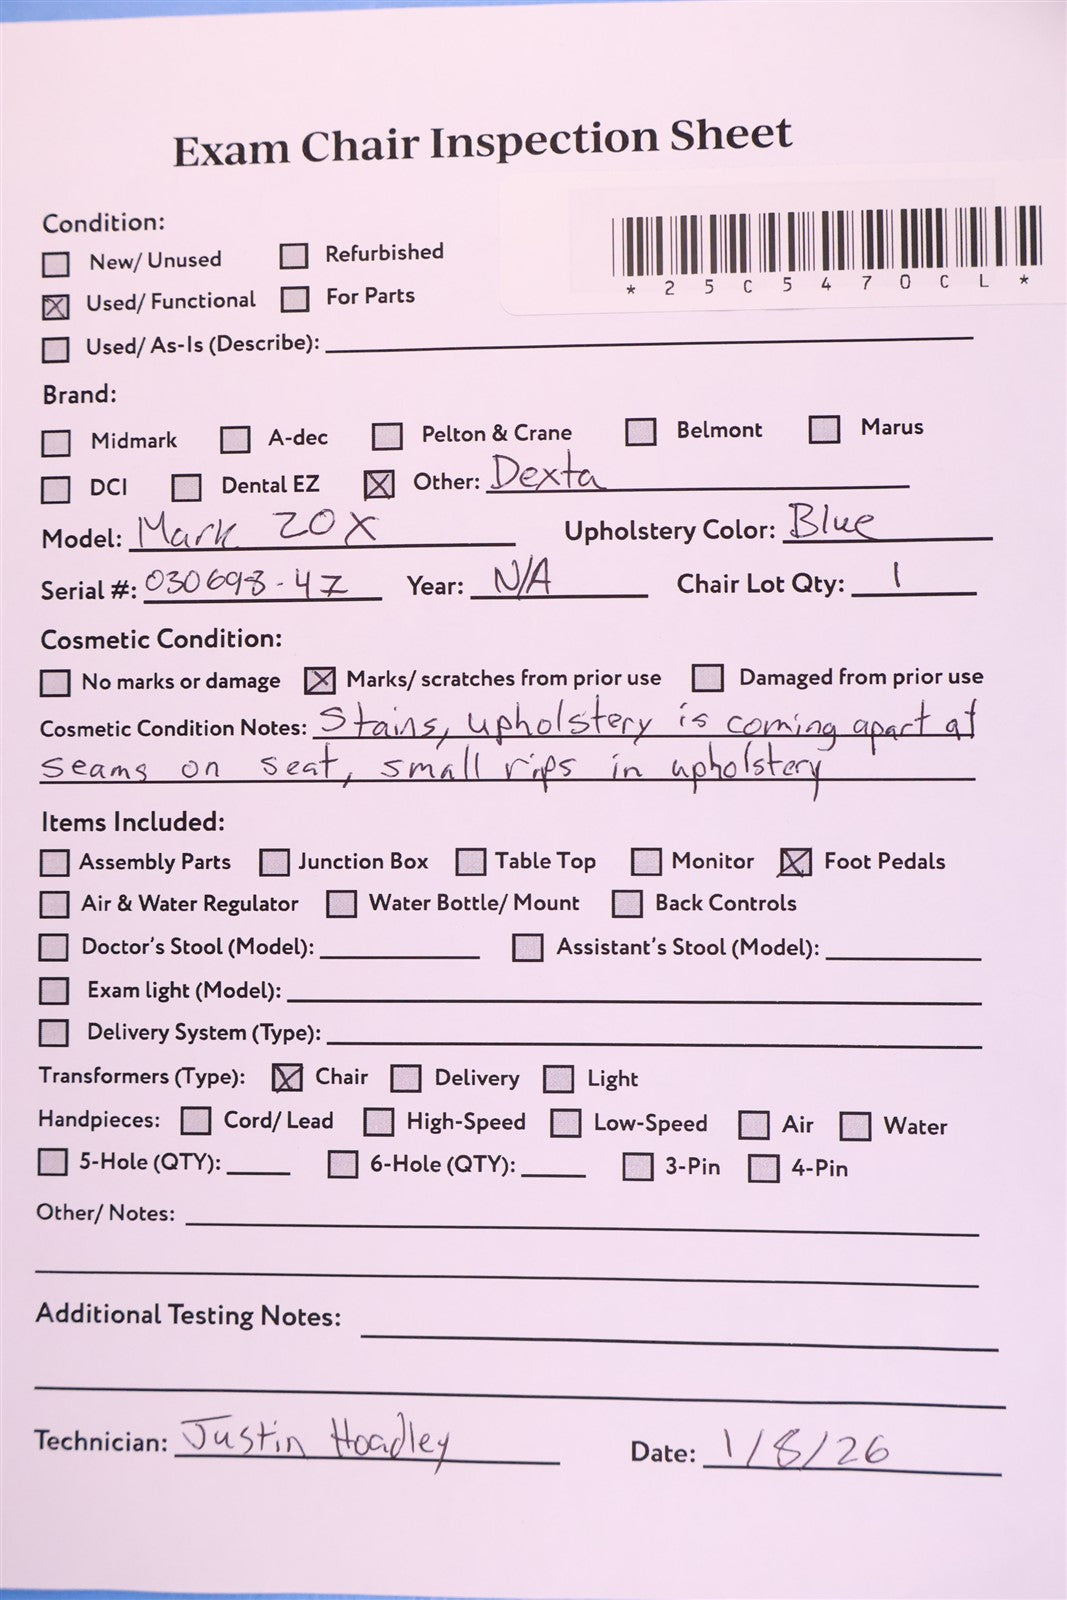 Exam Chair Inspection Sheet
Condition:
New/ Unused Refurbished
Used/ Functional For Parts
Used/ As-Is (Describe):
*25C5470CL*
Brand:
Midmark A-dec Pelton & Crane Belmont Marus
DCI Dental EZ Other: Dexta
Model: Mark 20X Upholstery Color: Blue
Serial #: 030698-47 Year: N/A Chair Lot Qty: 1
Cosmetic Condition:
No marks or damage Marks/ scratches from prior use Damaged from prior use
Cosmetic Condition Notes: Stains, upholstery is coming apart at
seams on seat, small rips in upholstery
Items Included:
Assembly Parts Junction Box Table Top Monitor Foot Pedals
Air & Water Regulator Water Bottle/ Mount Back Controls
Doctor's Stool (Model): Assistant's Stool (Model):
Exam light (Model):
Delivery System (Type):
Transformers (Type): Chair Delivery Light
Handpieces: Cord/ Lead High-Speed Low-Speed Air Water
5-Hole (QTY): 6-Hole (QTY): 3-Pin 4-Pin
Other/ Notes:
Additional Testing Notes:
Technician: Justin Hoadley Date: 1/8/26